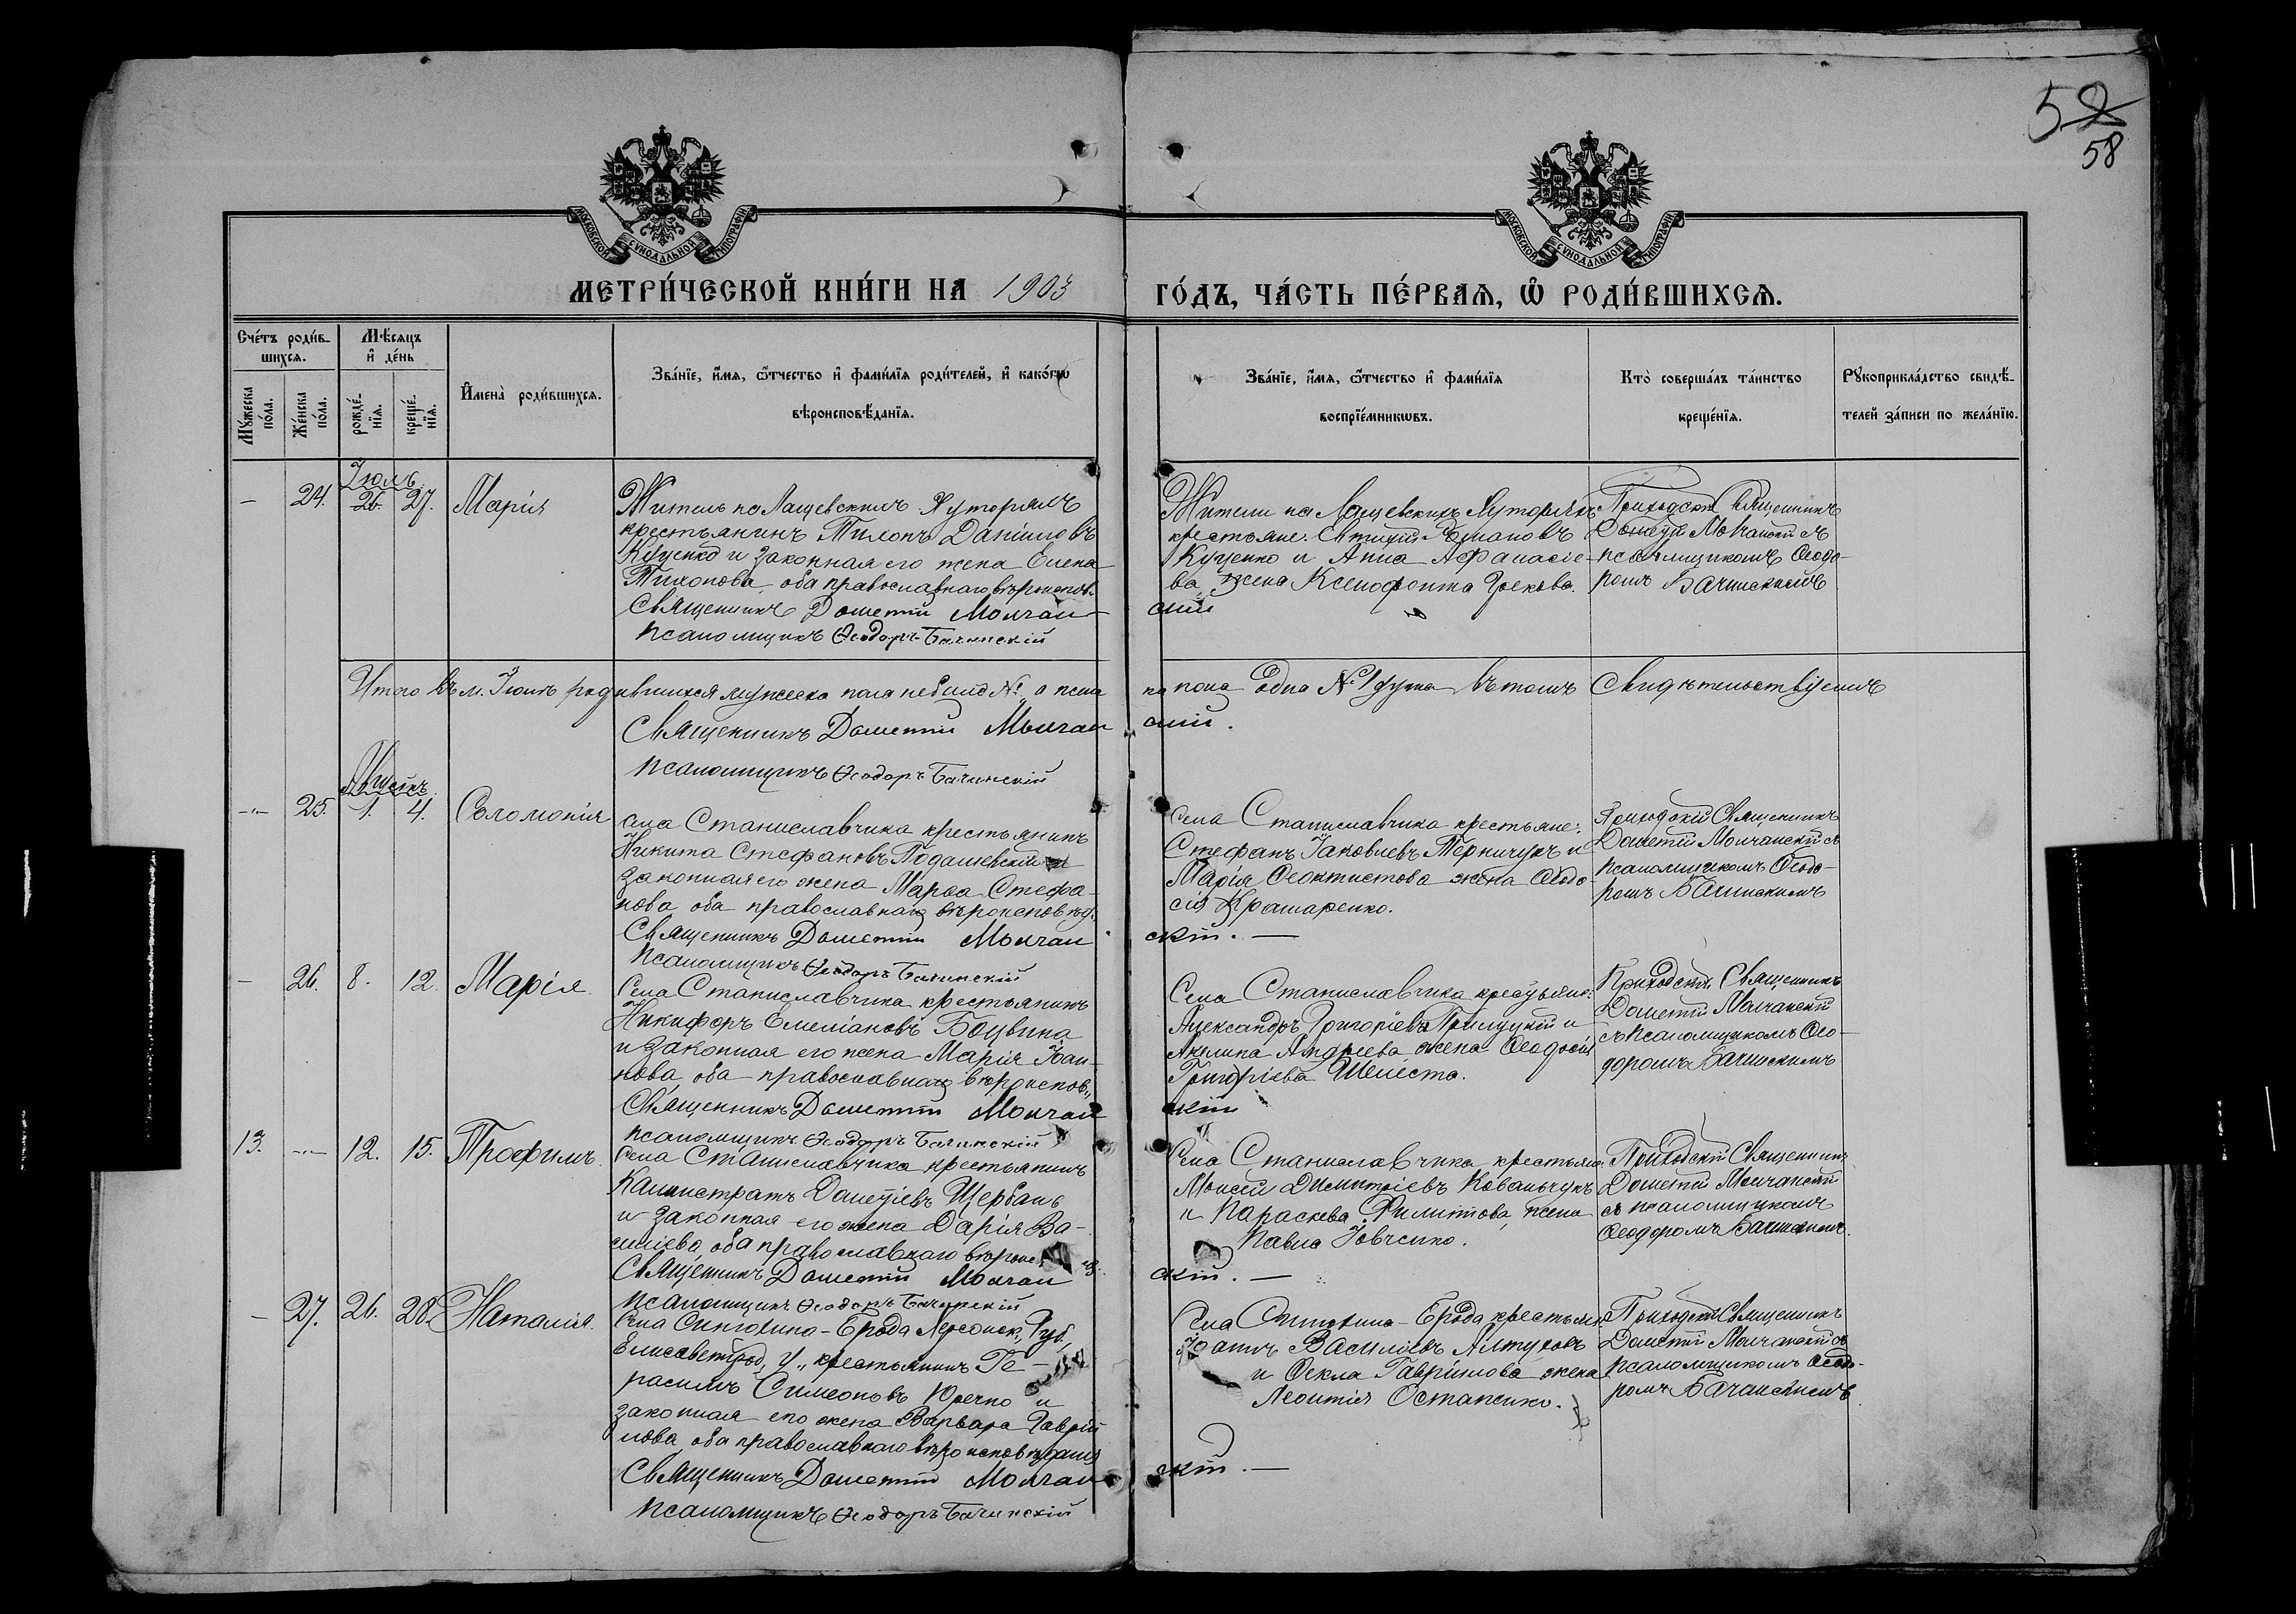 52
58
МОСКОВСКОЙ СѴНОДАЛЬНОЙ ТИПОГРАФІИ
МОСКОВСКОЙ СѴНОДАЛЬНОЙ ТИПОГРАФІИ
МЕТРИ́ЧЕСКОЙ КНИ́ГИ НА 1903 ГО́ДЪ, ЧА́СТЬ ПЕ́РВАѦ, Ѽ РОДИ́ВШИХСѦ.
Сче́тъ роди́в-
шихсѧ.
Мѣ́сѧцъ
и҆ де́нь
Мꙋ́жеска
по́ла.
Же́нска
по́ла.
рожде́-
нїѧ.
креще́-
нїѧ.
И҆мена̀ роди́вшихсѧ.
Зва́нїе, и҆́мѧ, ѻ҆́тчество и҆ фами́лїѧ роди́телей, и҆ како́гѡ
вѣроисповѣ́данїѧ.
Зва́нїе, и҆́мѧ, ѻ҆́тчество и҆ фами́лїѧ
воспрїе́мникѡвъ.
Кто̀ соверша́лъ та́инство
креще́нїѧ.
Рꙋкоприкла́дство свидѣ́-
телей за́писи по жела́нїю.
Іюль
– 24. 26. 27. Марія
Житель на Лащевскихъ Хуторахъ
крестьянинъ Данiиловъ
Куценко и законная его жена Елена
Тихонова, оба православнаго вѣроиспов.
Священникъ Дометій Молчан
псаломщикъ Ѳеодоръ Бачинскій
Жители на Лащевскихъ Хуторахъ
крестьяне:
Куценко и Анна Аѳанасіе-
ва, жена Ксенофонта Грекова.
скій
Приходскій Священникъ
Дометій Молчанскій съ
псаломщикомъ Ѳеодо-
ромъ Бачинскимъ
Итого въ м. Іюлѣ родившихся мужеска пола не было №, а женска пола одна № 1 душа въ томъ Свидѣтельствуемъ
Священникъ Дометій Молчан скій.
псаломщикъ Ѳеодоръ Бачинскій
Августъ
–"– 25. 1. 4. Соломонія
села Станиславчика крестьянинъ
Никита Стефановъ и
законная его жена Марѳа Стефа-
нова оба православнаго вѣроисповѣд.
Священникъ Дометій Молчан
псаломщикъ Ѳеодоръ Бачинскій
Села Станиславчика крестьяне:
Стефанъ Іаковлевъ и
Марія Ѳеоктистова жена Ѳеодо-
сія Крамаренко.
скій. –
Приходскій Священникъ
Дометій Молчанскій съ
псаломщикомъ Ѳеодо-
ромъ Бачинскимъ
– 26. 8. 12. Марія
Села Станиславчика крестьянинъ
Никифоръ Емеліановъ Боцвина
и законная его жена Марія Іоан-
нова оба православнаго вѣроиспов.,
Священникъ Дометій Молчан
псаломщикъ Ѳеодоръ Бачинскій
Села Станиславчика крестьяне:
Александръ Григоріевъ Прилуцкій и
Акилина Андреева жена Ѳеодосія
Григоріева Шелеста.
скій
Приходскій Священникъ
Дометій Молчанскій
съ псаломщикомъ Ѳео-
доромъ Бачинскимъ
13. –"– 12. 15. Трофимъ.
Села Станиславчика крестьянинъ
Каллистратъ Дометіевъ Щербань
и законная его жена Дарія Ва-
силіева, оба православнаго вѣроис
Священникъ Дометій Молчан
псаломщикъ Ѳеодоръ Бачинскій
Села Станиславчика крестьяне:
Моисей Димитріевъ Ковальчукъ
и Параскева Филиппова, жена
Павла Іовченко.
скій. –
Приходскій Священникъ
Дометій Молчанскій
съ псаломщикомъ
Ѳеодоромъ Бачинскимъ.
– 27. 26. 28. Наталія.
Села -Брода Херсонск., Губ.,
Елисаветград, у., крестьянинъ Ге-
расимъ Симеоновъ и
законная его жена Варвара Гаврiи
лова, оба православнаго вѣроисповѣданія
Священникъ Дометій Молчан
псаломщикъ Ѳеодоръ Бачинскій
Села -Брода крестьяне
Іоаннъ Василіевъ Алтуховъ
и Ѳекла Гавріилова жена
Леонтія Остапенко.
скій. –
Приходскій Священникъ
Дометій Молчанскій съ
псаломщикомъ Ѳеодо-
ромъ Бачинскимъ